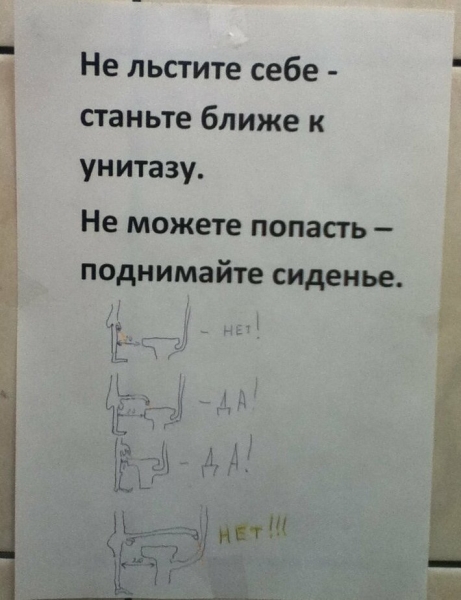 Не льстите себе -
станьте ближе к
унитазу.
Не можете попасть –
поднимайте сиденье.
- НЕТ!
- ДА!
- ДА!
НЕТ!!!